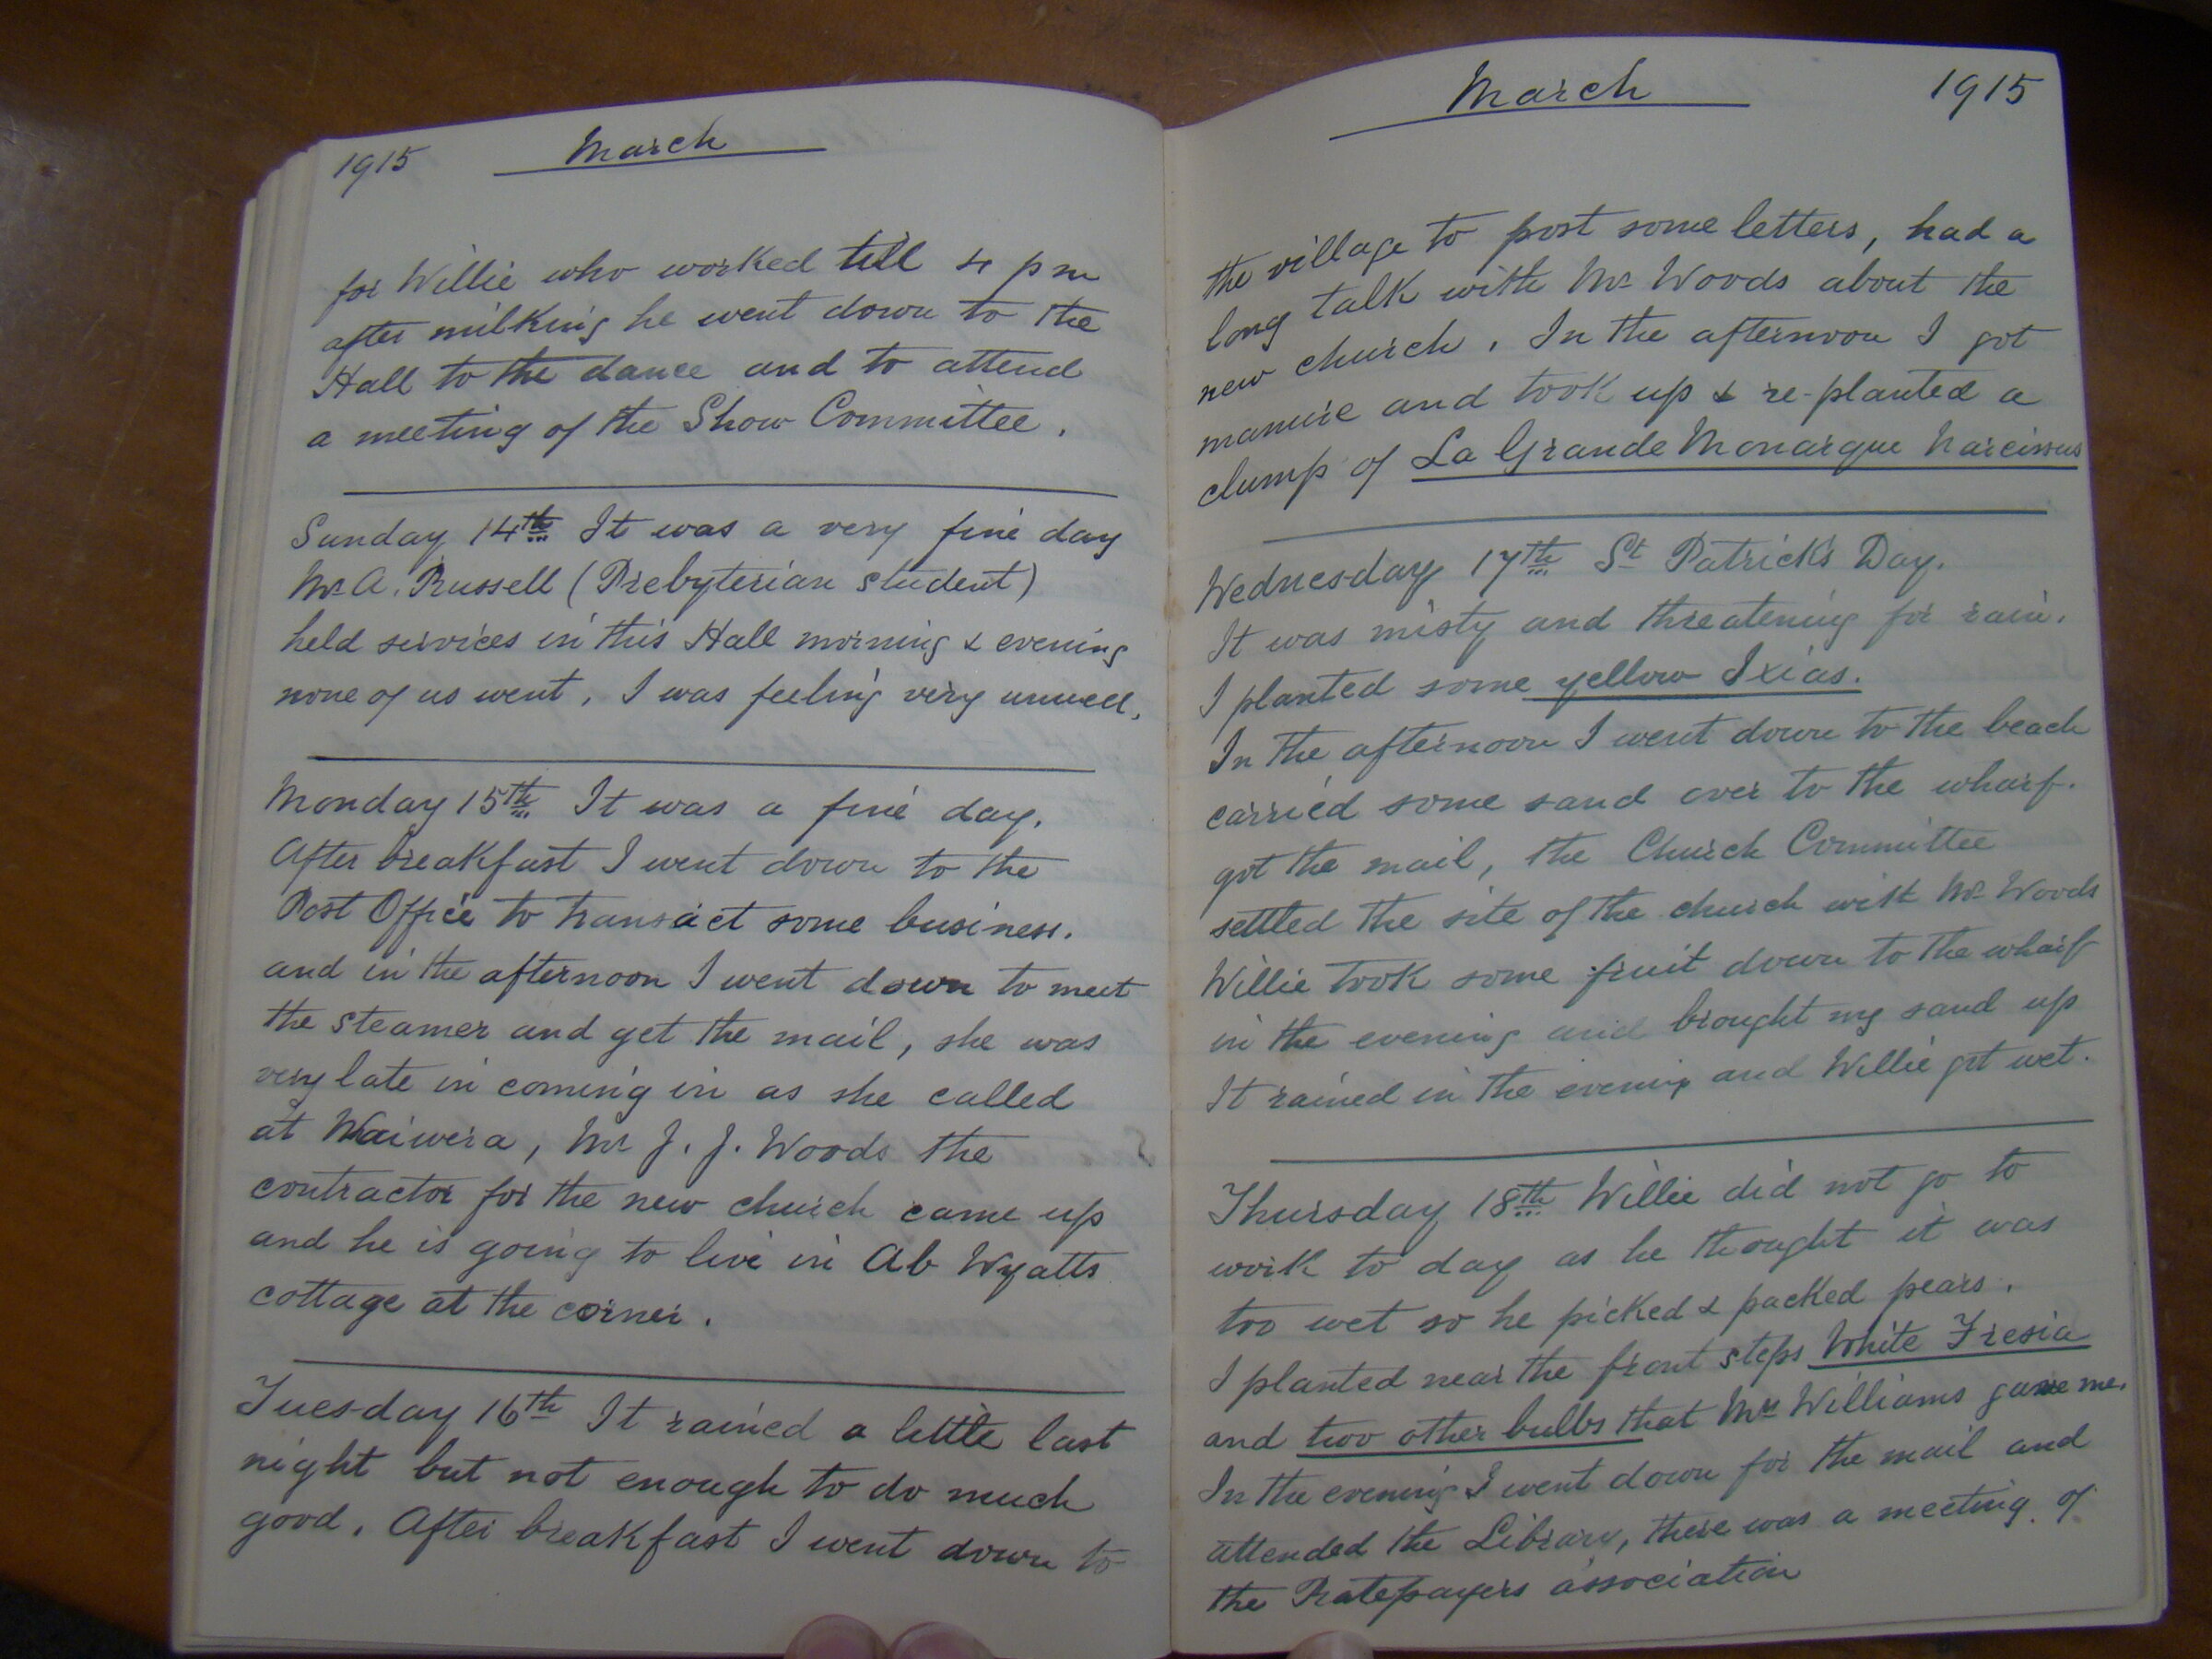 1915 March
for Willie who worked till 4 pm
after milking he went down to the
Hall to the dance and to attend
a meeting of the Show Committee.
Sunday 14th It was a very fine day
Mr A. Russell (Presbyterian student)
held services in this Hall morning & evening
none of us went, I was feeling very unwell.
Monday 15th It was a fine day.
After breakfast I went down to the
Post Office to transact some business.
and in the afternoon I went down to meet
the steamer and get the mail, she was
very late in coming in as she called
at Waiwera, Mr J. J. Woods the
contractor for the new church came up
and he is going to live in Ab Wyatts
cottage at the corner.
Tuesday 16th It rained a little last
night but not enough to do much
good. After breakfast I went down to
March 1915
the village to post some letters, had a
long talk with Mr Woods about the
new church. In the afternoon I got
manure and took up & re-planted a
clump of La Grande Monarque Narcissus
Wednesday 17th St Patricks Day.
It was misty and threatening for rain.
I planted some yellow Ixias.
In the afternoon I went down to the beach
carried some sand over to the wharf.
got the mail, the Church Committee
settled the site of the church with Mr Woods
Willie took some fruit down to the wharf
in the evening and brought my sand up
It rained in the evening and Willie got wet.
Thursday 18th Willie did not go to
work to day as he thought it was
too wet so he picked & packed pears.
I planted near the front steps White Fresia
and two other bulbs that Mrs Williams gave me.
In the evening I went down for the mail and
attended the Library, there was a meeting of
the Ratepayers association